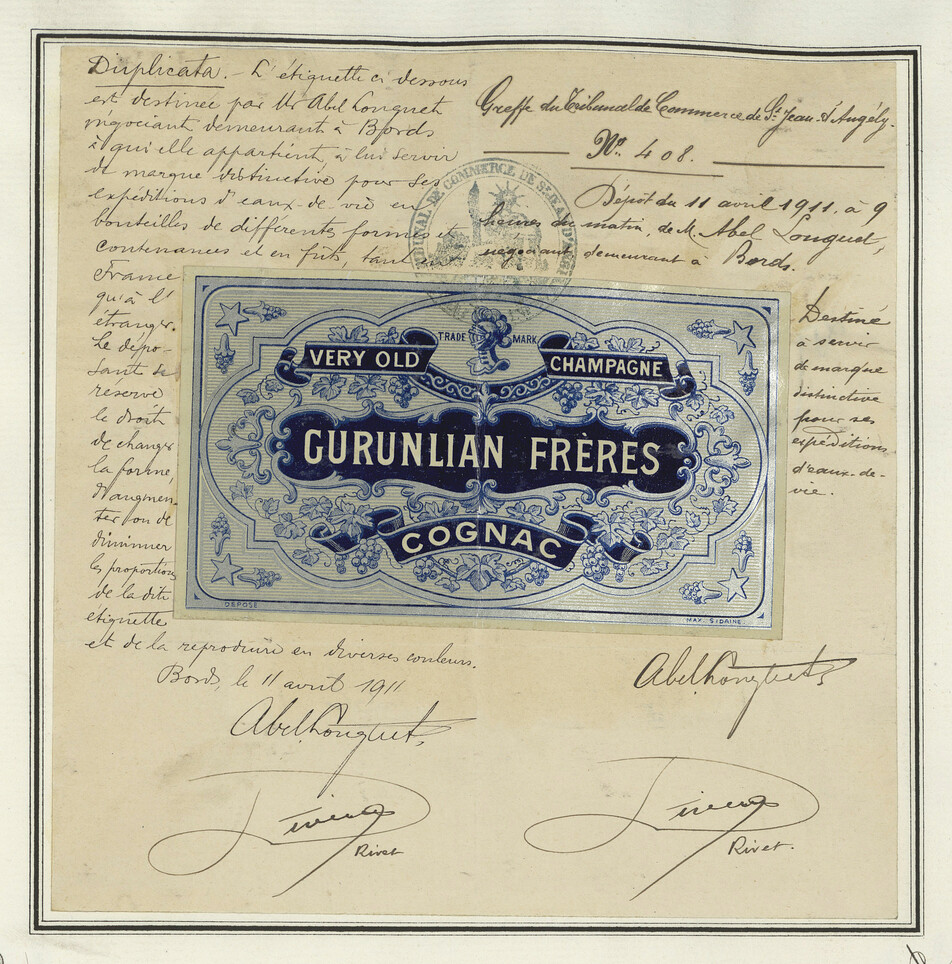 Duplicata. - L'étiquette ci dessous
est destinée par Mr Abel Longuet
négociant demeurant à Bords
à qui elle appartient, à lui servir
de marque distinctive pour ses
expéditions d'eaux-de-vie en
bouteilles de différentes formes et
contenances et en fûts, tant en
France
qu'à l'
étranger.
Le dépo-
sant se
réserve
le droit
de changer
la forme
d'augmen-
ter ou de
diminuer
les proportions
de la dite
étiquette
et de la reproduire en diverses couleurs.
Bords, le 11 avril 1911
Abel Longuet
Rivet
Greffe du Tribunal de Commerce de St Jean-d'Angély.
No. 408.
Dépôt du 11 avril 1911, à 9
heures du matin, de M. Abel Longuet,
négociant demeurant à Bords.
TRIBUNAL DE COMMERCE DE ST JEAN D'ANGELY
TRADE MARK
VERY OLD CHAMPAGNE
GURUNLIAN FRÈRES
COGNAC
DÉPOSÉ
MAX. SIDAINE.
Destiné
à servir
de marque
distinctive
pour ses
expéditions
d'eaux-de-
vie.
Abel Longuet
Rivet.